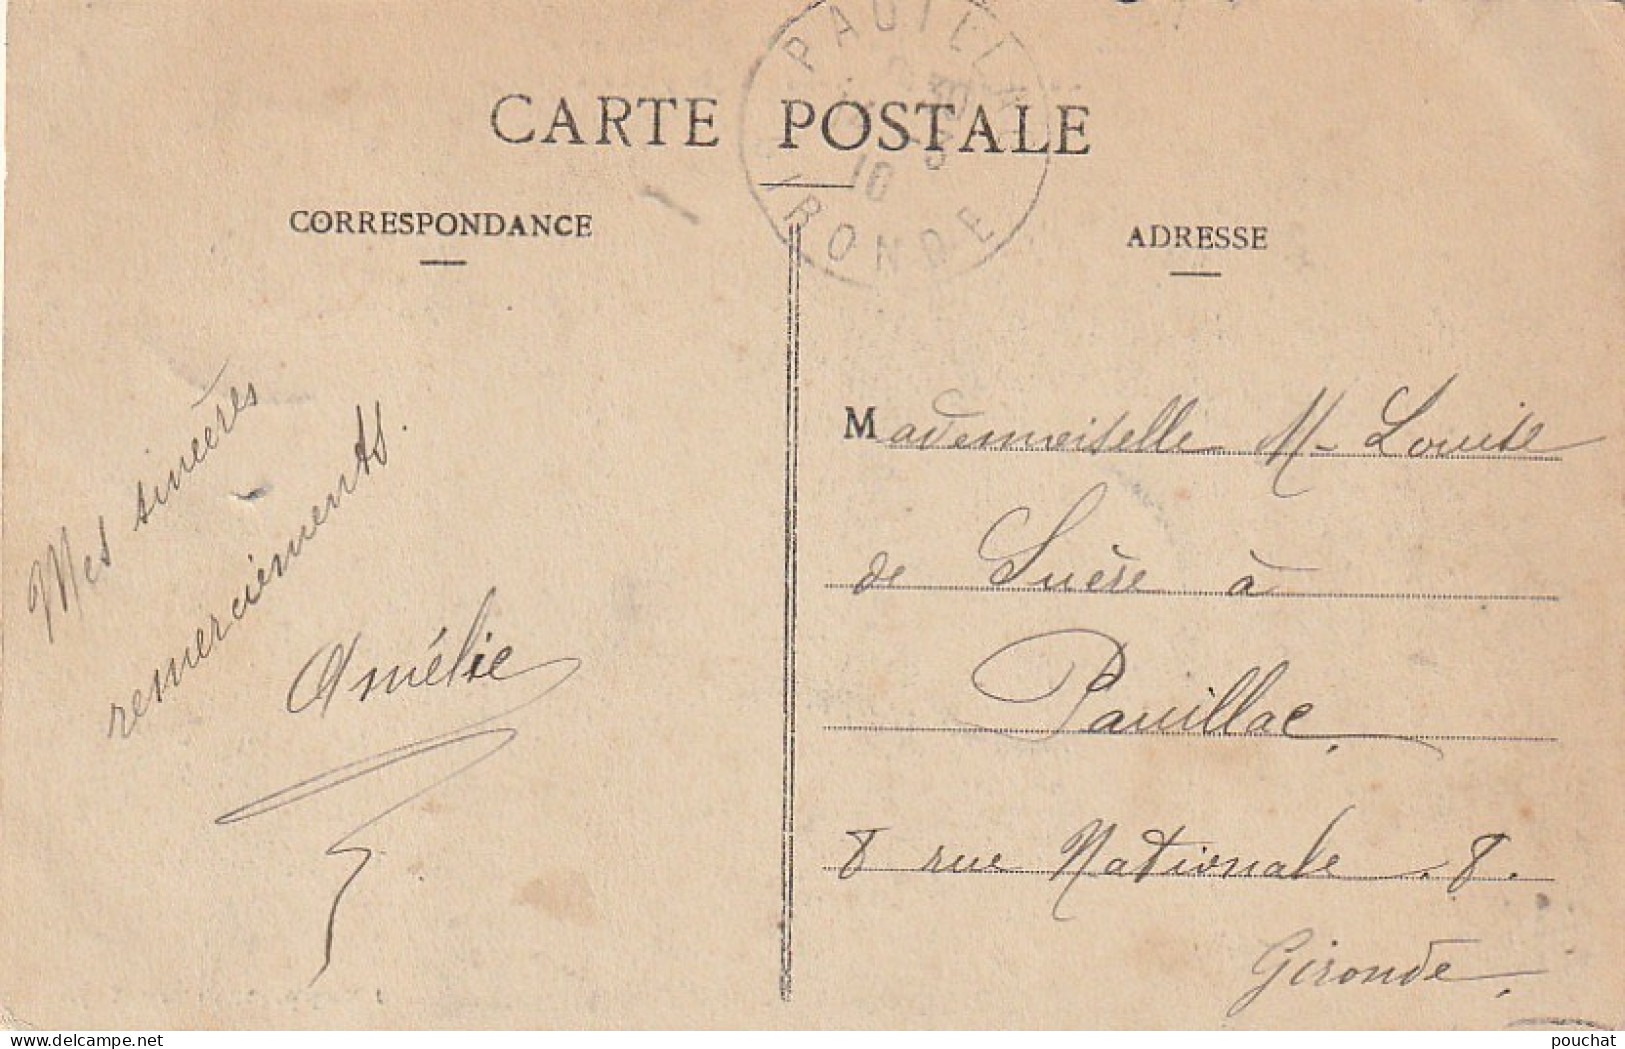 CARTE POSTALE
CORRESPONDANCE
ADRESSE
Mes sincères
remerciements.
Amélie
Mademoiselle M-Louise
de Suère à
Pauillac
8 rue Nationale . 8.
Gironde
10
www.delcampe.net
pouchat